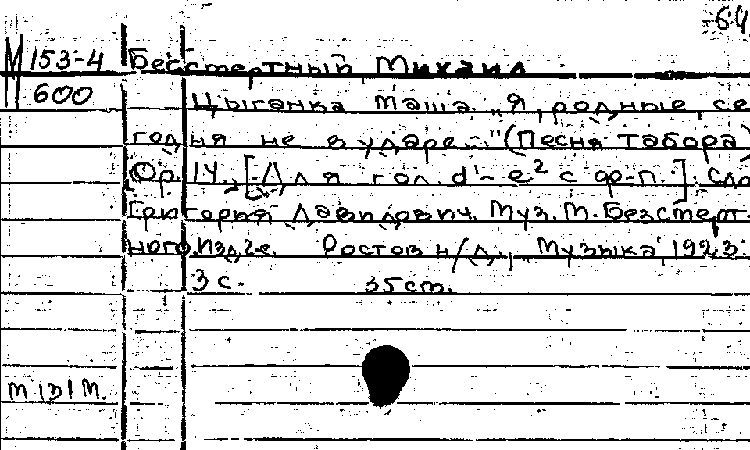 -64
М 153-4 Бессмертный, Михаил
600 Цыганка Маша. „Я, родные, се
годня не в ударе..." (Песня табора)
Op. 14. [Для гол. d¹-e² с ф-п.]. Сло
Григория Давидович. Муз. М. Безсмерт
ного. Изд. 2е. Ростов н/Д., Музыка, 1923.
3 с. 35 cm.